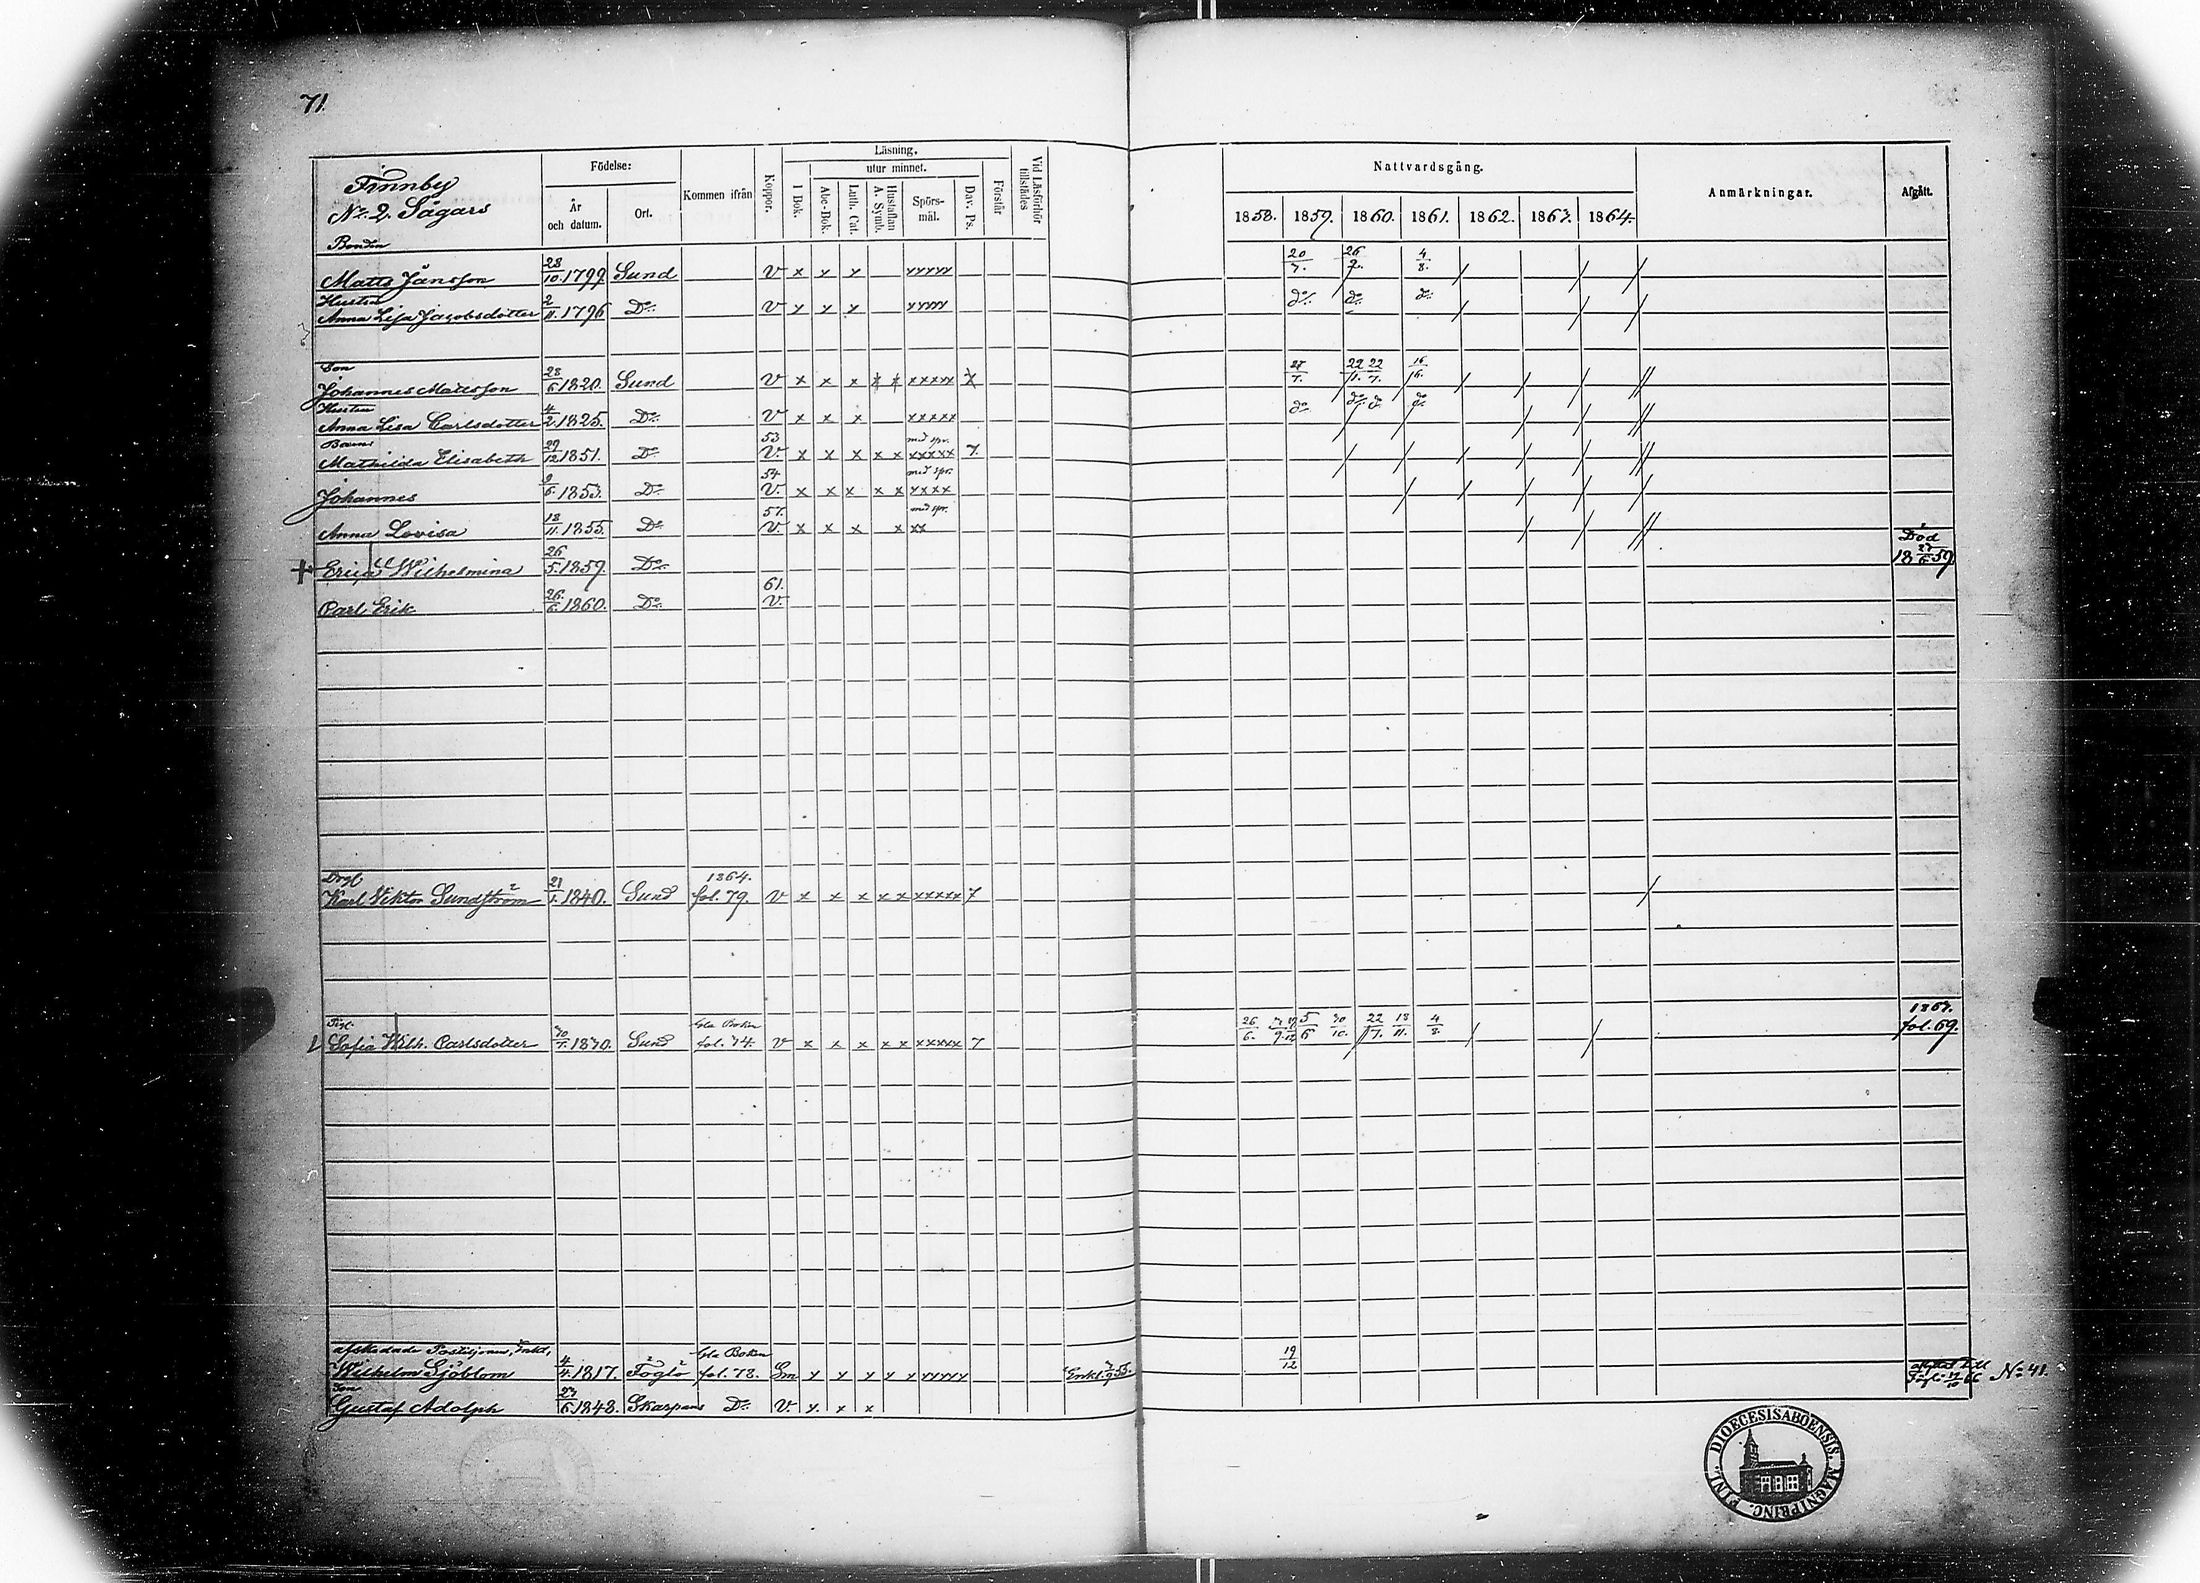 71.
Finnby
No. 2. Sågars
Födelse:
År och datum.
Ort.
Kommen ifrån
Koppor.
Läsning.
utur minnet.
I Bok.
Abc-Bok.
Luth. Cat.
Hustaflan A. Symb.
Spörs-mål.
Dav. Ps.
Förstår
Vid Läsförhör tillstädes
Nattvardsgång.
1858. 1859. 1860. 1861. 1862. 1863. 1864.
Anmärkningar.
Afgått.
Bonden
Matts Jansson 28/10. 1799 Sund V x x x xxxxx 20/7. 26/7. 4/8.
Hustru
Anna Lisa Jacobsdotter 2/11. 1796 Do V x x x xxxxx do do do
Son
Johannes Mattsson 28/6 1820. Sund V x x x x x xxxxx x 22/7. 16/6.
Hustru
Anna Lisa Carlsdotter 4/2. 1825. Do V x x x xxxxx do do do do
Barn
Mathilda Elisabeth 29/12 1851. Do 53 V. x x x x x med spr. xxxxx 7.
Johannes 9/6. 1853. Do 54 V. x x x x x med spr. xxxx
Anna Lovisa 18/11. 1855. Do 57. V. x x x x med spr. xx
+ Erica Wilhelmina 26/5. 1859. Do Död 18 27/6 59
Carl Erik 26/6 1860. Do 61. V.
Drgl
Karl Viktor Sundström 21/1. 1840. Sund 1864. fol. 79. V x x x x x xxxxx 7
Pigl.
Sofia Wilh. Carlsdotter Sund fol. 74. V x x x x x xxxxx 7 26/6. 5/6 30/10. 22/7. 18/11. 4/8. fol. 69.
afskedade Postiljonen, Enkl.
Wilhelm Sjöblom 4/4. 1817. Föglö fol. 78. Sm x x x x x xxxxx 19/12 No 41.
Son
Gustaf Adolph 1848. Skarpans Do V. x. x x
DIOECESIS ABOENSIS. MAGNI PRINC. FINL.